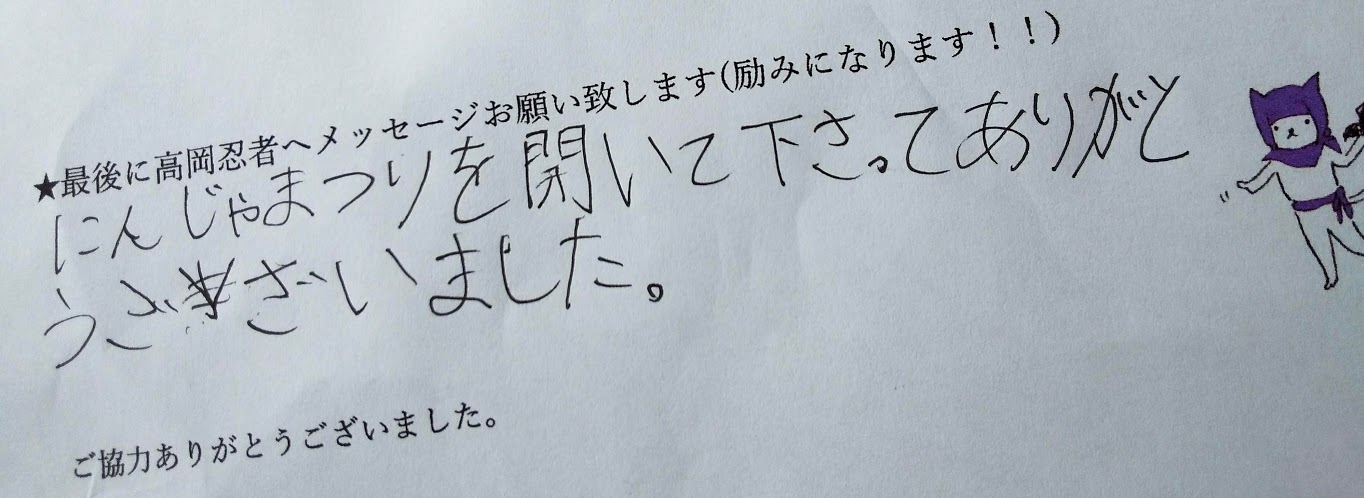 ★最後に高岡忍者へメッセージお願い致します(励みになります！！)
にんじゃまつりを開いて下さってありがと
うございました。
ご協力ありがとうございました。